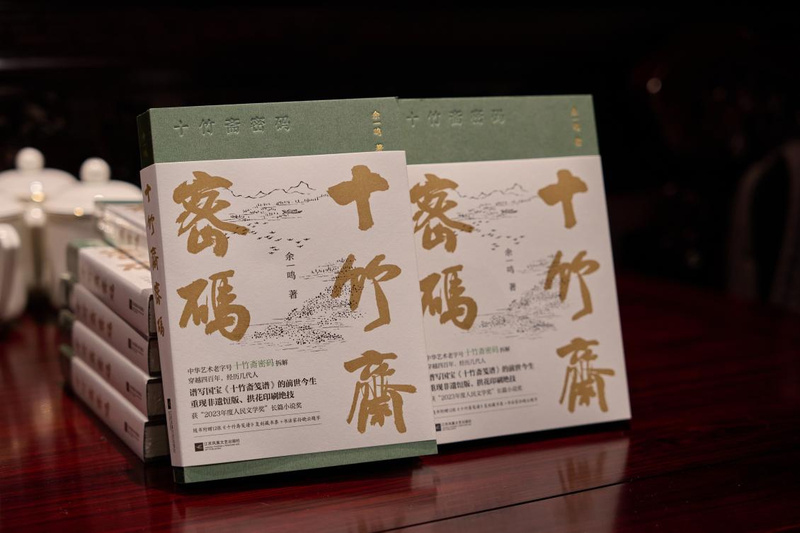 十竹斋密码
余一鸣 著
十竹齋
密碼
余一鸣 著
中华艺术老字号 十竹斋密码 拆解
穿越四百年，经历几代人
谱写国宝《十竹斋笺谱》的前世今生
重现非遗饾版、拱花印刷绝技
获“2023年度人民文学奖”长篇小说奖
江苏凤凰文艺出版社
十竹齋密碼
十竹斋密码
余一鸣 著
十竹齋
密碼
余一鸣 著
中华艺术老字号 十竹斋密码 拆解
穿越四百年，经历几代人
谱写国宝《十竹斋笺谱》的前世今生
重现非遗饾版、拱花印刷绝技
获“2023年度人民文学奖”长篇小说奖
江苏凤凰文艺出版社